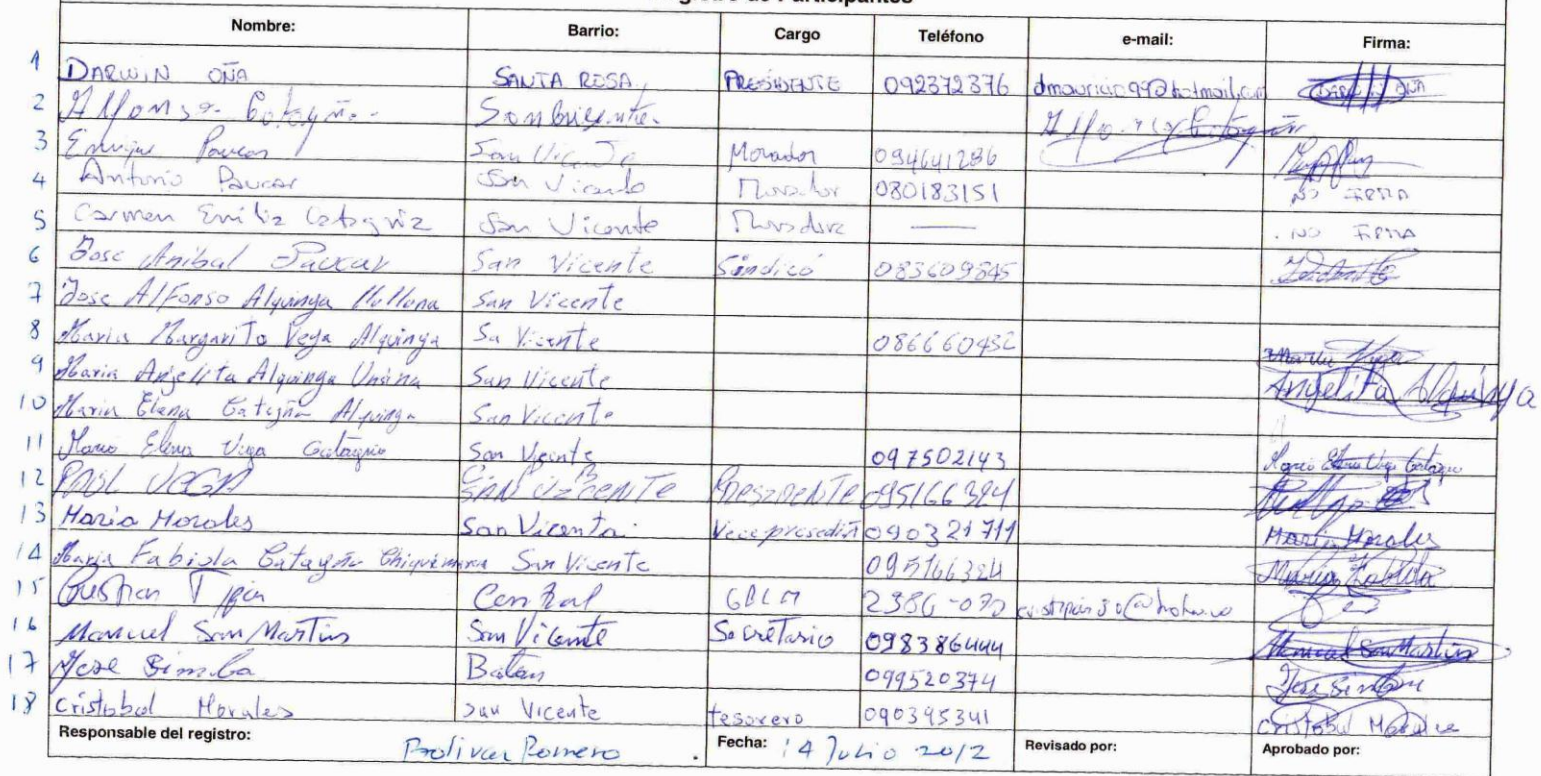 Registro de Participantes
Nombre: Barrio: Cargo Teléfono e-mail: Firma:
1 DARWIN OÑA SANTA ROSA PRESIDENTE 092372376 dmauricio99@hotmail.com DARWIN OÑA
2 Alfonso
3 Enrique Paucar San Vicente Morador 094641286
4 Antonio Paucar San Vicente Morador 080183151 NO FIRMA
5 Carmen Emilia San Vicente Moradora — NO FIRMA
6 Jose Anibal Paucar San Vicente Sindico 083609845
7 Jose Alfonso Alquinga San Vicente
8 Maria Margarita Vega Alquinga Sa Vicente 086660432 Maria Vega
9 Maria Angelita Alquinga San Vicente Angelita Alquinga
10 Maria Elena Alquinga San Vicente
11 Maria Elena Vega San Vicente 097502143 Maria Elena Vega
12 PAÚL VEGA SAN VICENTE PRESIDENTE 095166324
13 Maria Morales San Vicente 090321711 Maria Morales
14 Maria Fabiola San Vicente 095166324 Maria Fabiola
15 Cristian Tipan Central 2386-070
16 Manuel San Martin San Vicente Secretario 098386444 Manuel San Martin
17 Jose Simba Batan 099520374 Jose Simba
18 Cristobal Morales San Vicente tesorero 090395341 Cristobal Morales
Responsable del registro: Romero Fecha: 14 Julio 2012 Revisado por: Aprobado por: